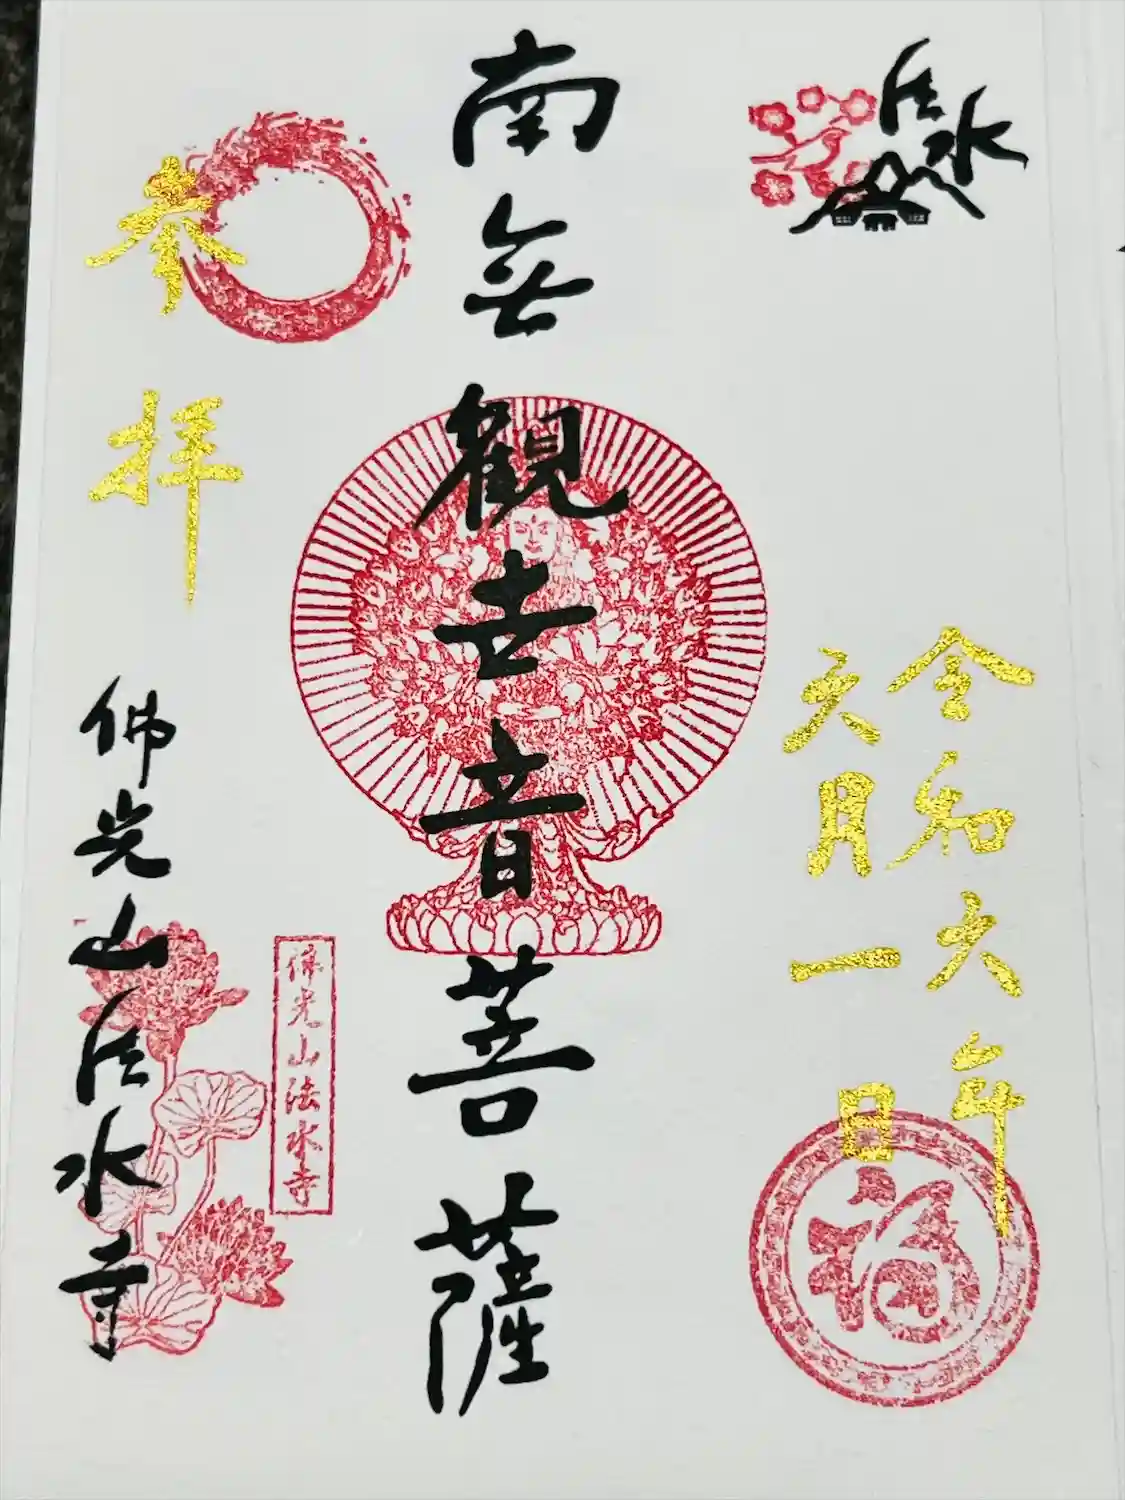 法水
令和六年
六月一日
福
南無觀世音菩薩
奉拝
佛光山法水寺
佛光山法水寺